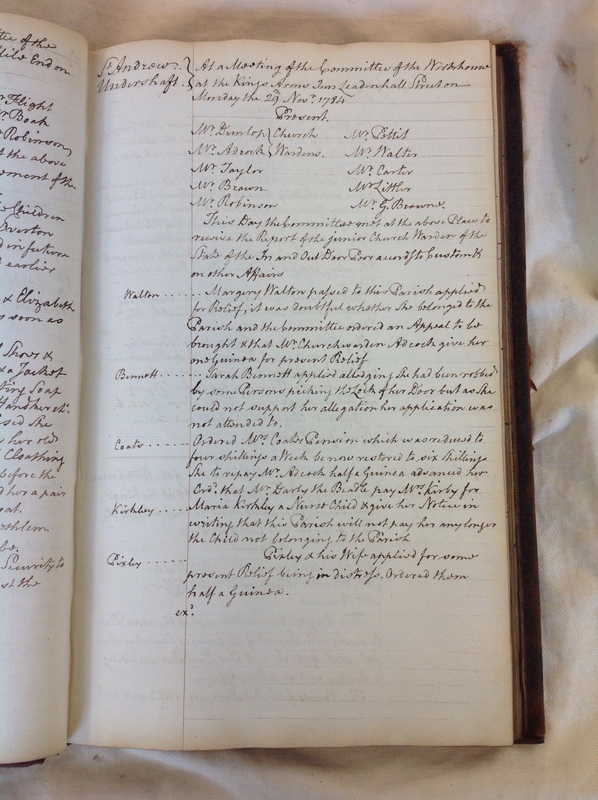 tee of the
Mile End on
r Flight
r Beak
Robinson
t the above
ement of the
Children
Overton
d in future
earlier
& Elizabeth
s soon as
Shoes &
& a Jacket
Soap
sed She
s her old
Cloathing
before the
d her a pair
oat.
athlem
be.
Security to
st the
St. Andrew. } At a Meeting of the Committee of the Workhouse
Undershaft. } at the Kings Arms Inn Leadenhall Street on
Monday the 29 Novr. 1784
Present.
Mr. Dunlop } Church Mr. Pettit
Mr. Adcock } Wardens. Mr. Walter
Mr. Taylor Mr. Carter
Mr. Brown Mr. Littler
Mr. Robinson Mr. G. Browne.
This Day the Committee met at the above Place to
receive the Report of the junior Church Warden of the
State of the In and Out Door Poor accordg. to Custom &
on other Affairs
Walton ...... Margery Walton passed to this Parish applied
for Relief, it was doubtful whether She belonged to the
Parish and the Committee ordered an Appeal to be
brought & that Mr. Churchwarden Adcock give her
one Guinea for present Relief
Bennett ...... Sarah Bennett applied alledging She had been robbed
by some Persons picking the Lock of her Door but as She
could not support her allegation her application was
not attended to.
Coats ...... Ordered Mrs. Coates Pension which was reduced to
four shillings a Week be now restored to six shillings
She to repay Mr. Adcock half a Guinea advanced her
Ord. that Mr. Darby the Beadle pay Mrs. Kirby for
Kirkley ...... Maria Kirkley a Nurse Child & give her Notice in
writing that this Parish will not pay her any longer
the Child not belonging to the Parish
Pixley ...... Pixley & his Wife applied for some
present Relief being in distress. Ordered them
half a Guinea.
exd.